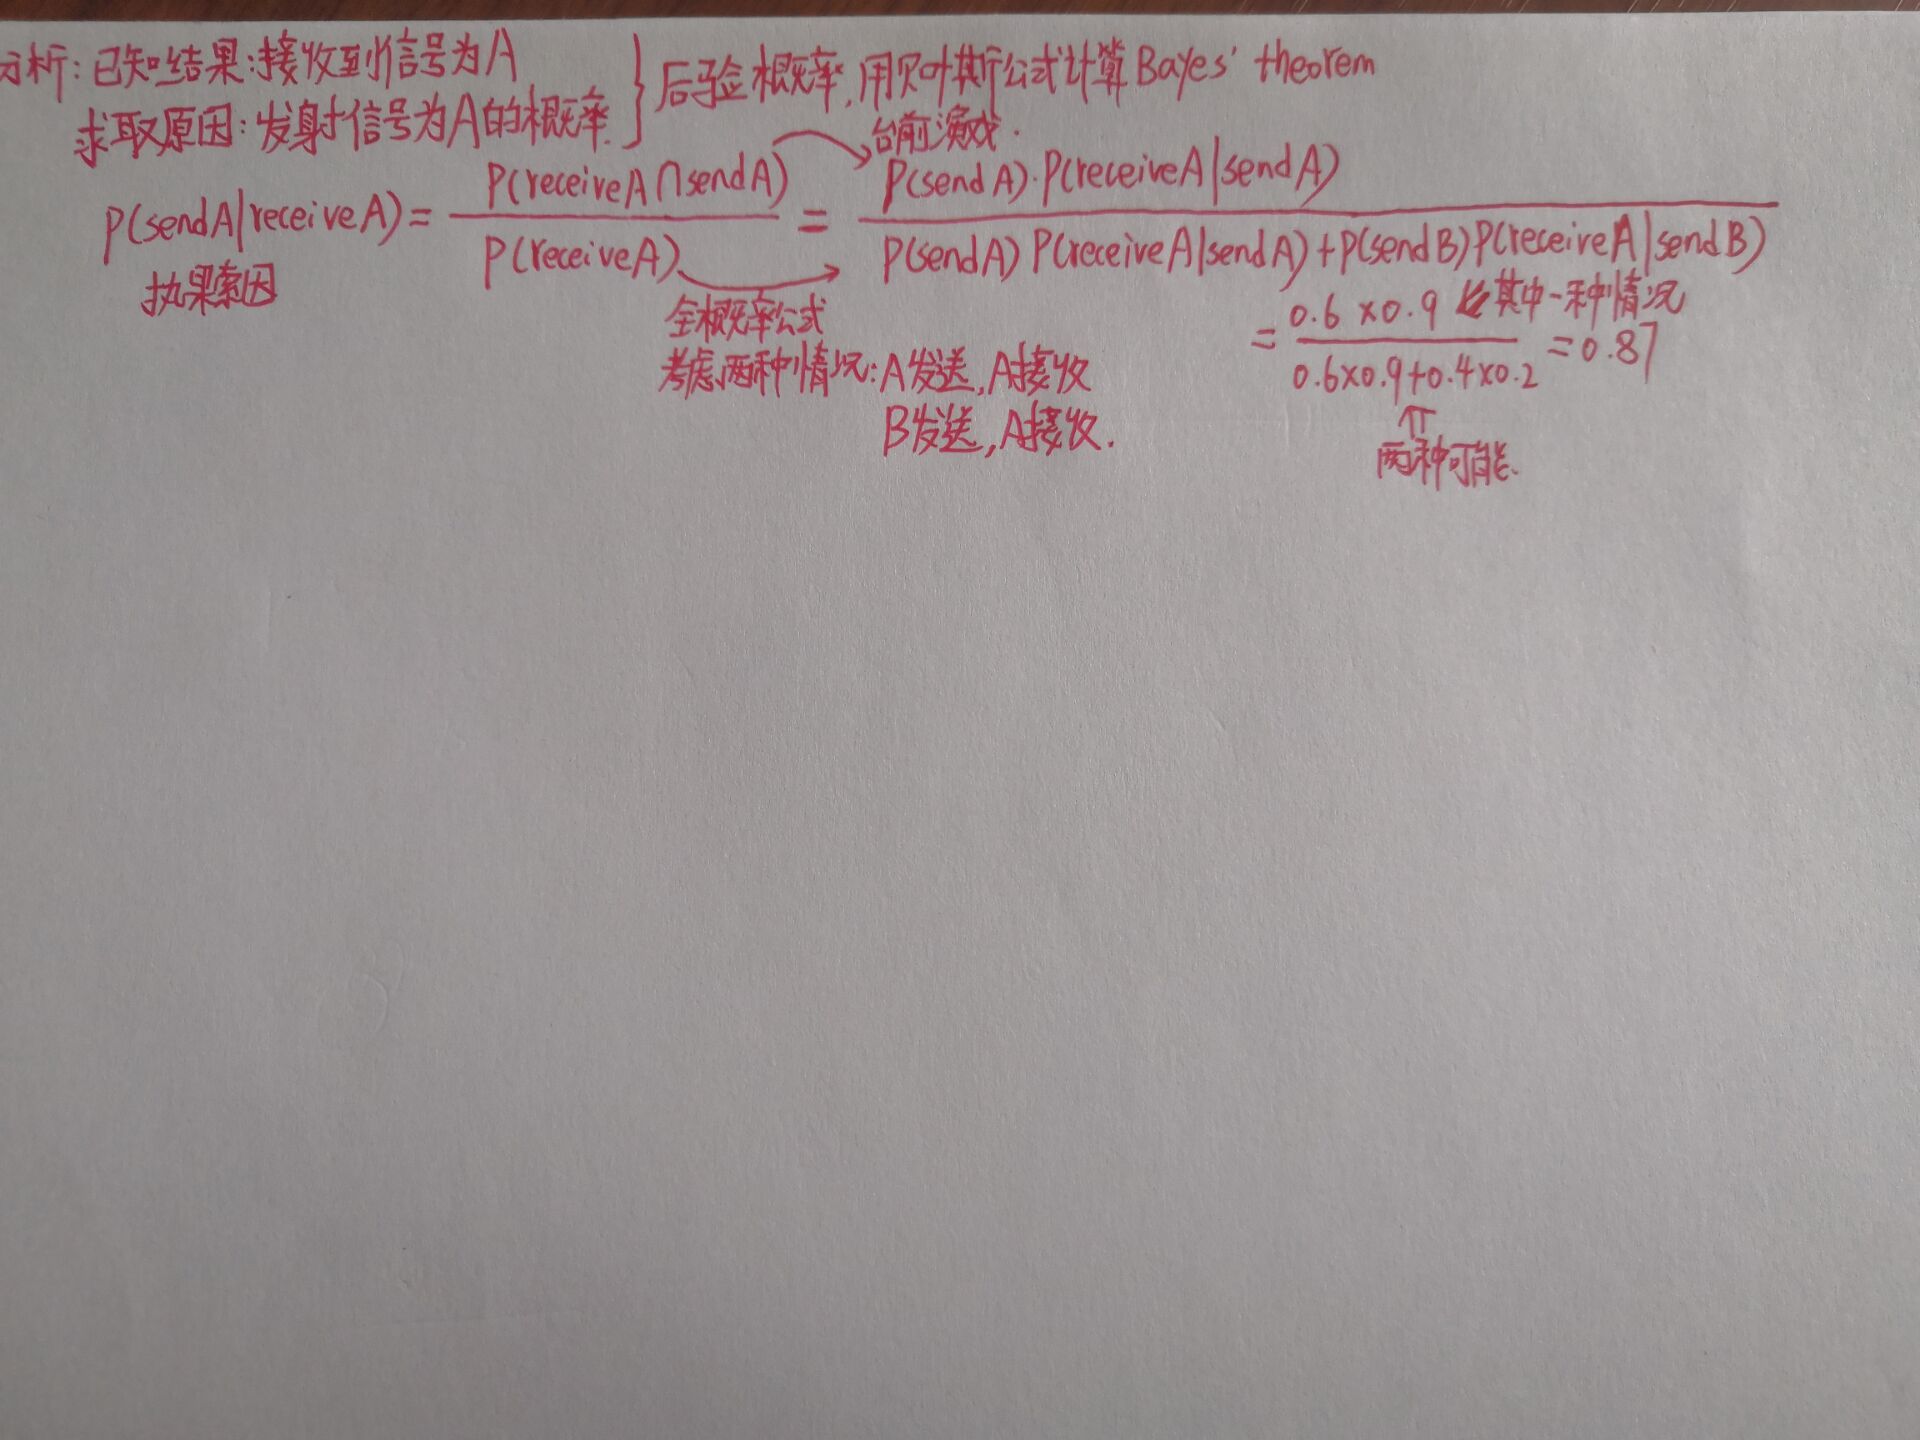 分析：已知结果：接收到信号为A
求取原因：发射信号为A的概率.
}后验概率，用贝叶斯公式计算Bayes' theorem
台前演戏.
P(sendA|receiveA)= P(receiveA∩sendA) / P(receiveA) = P(sendA)·P(receiveA|sendA) / P(sendA)P(receiveA|sendA)+P(sendB)P(receiveA|sendB)
执果索因
全概率公式
考虑两种情况：A发送，A接收
B发送，A接收.
= 0.6×0.9 / 0.6×0.9+0.4×0.2 =0.87
⇐其中一种情况
⇑
两种可能.